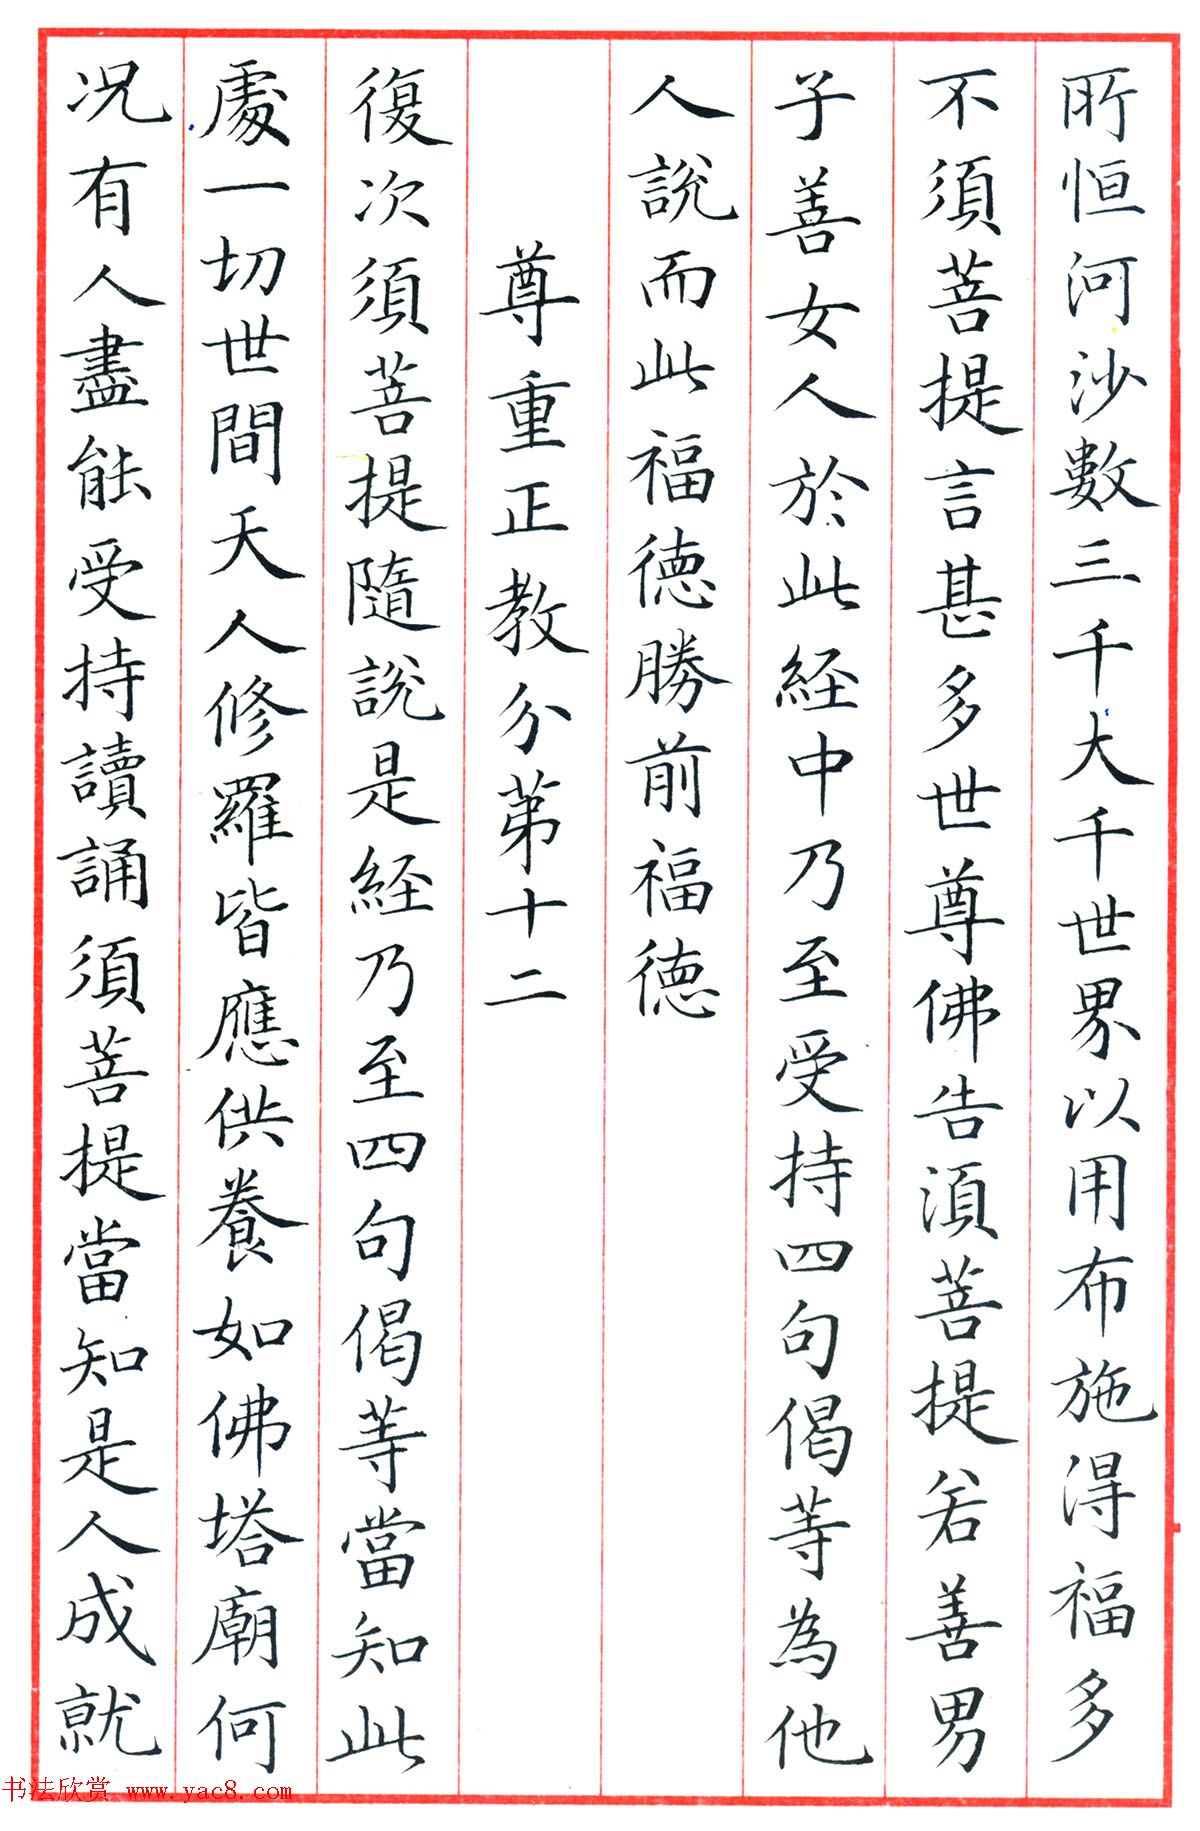 所恒河沙數三千大千世界以用布施得福多
不須菩提言甚多世尊佛告須菩提若善男
子善女人於此経中乃至受持四句偈等為他
人說而此福德勝前福德
尊重正教分第十二
復次須菩提隨說是経乃至四句偈等當知此
處一切世間天人修羅皆應供養如佛塔廟何
况有人盡能受持讀誦須菩提當知是人成就
书法欣赏 www.yac8.com